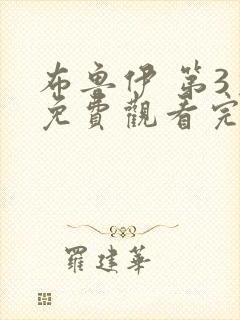 布魯伊 第3
免費觀看完
羅建華